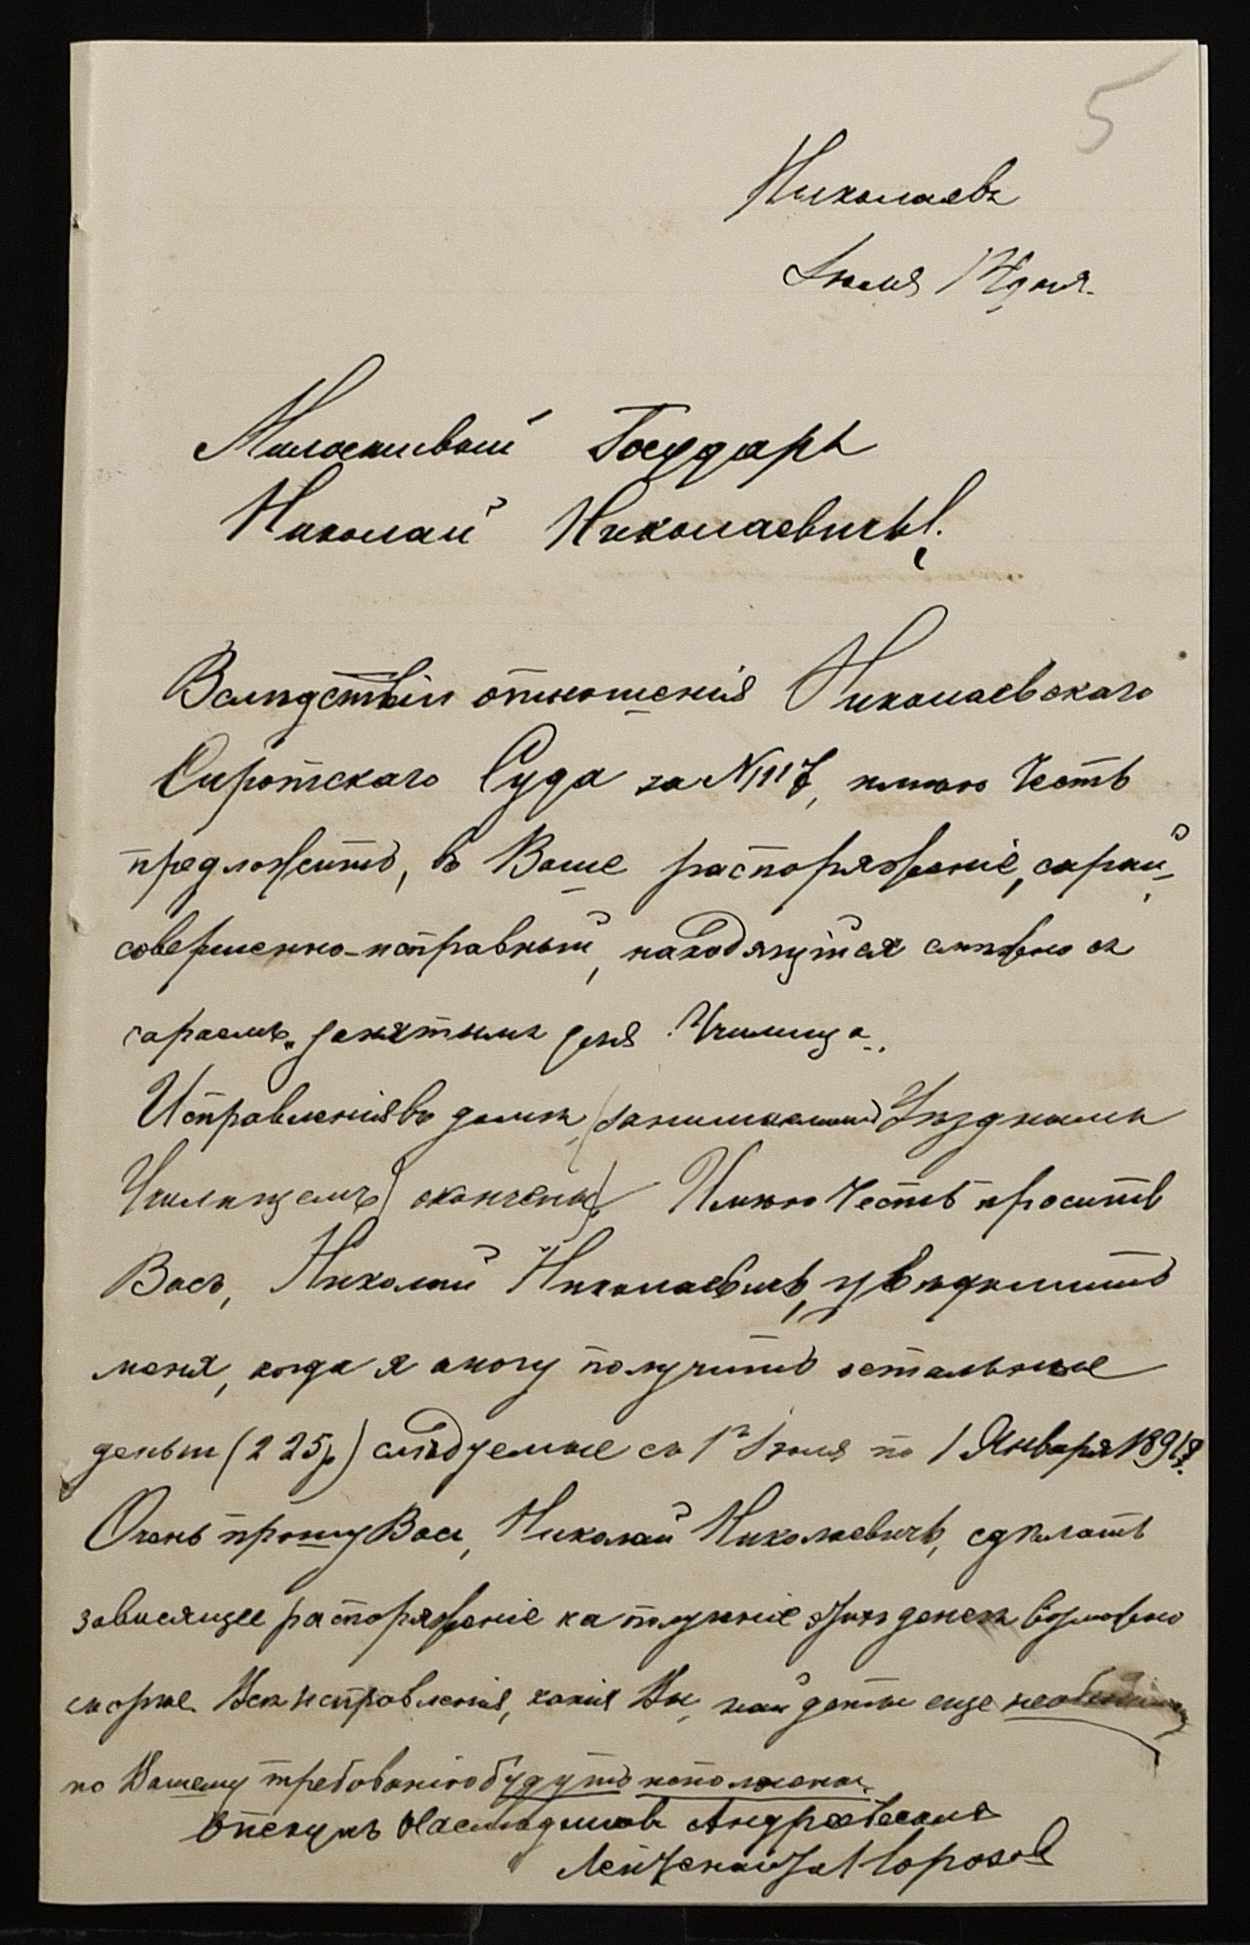 5
Николаевъ
Іюля дня.
Милостивый Государь
Николай Николаевичъ!
Вслѣдствіи отношенія Николаевскаго
Сиротскаго Суда за № 1117, имѣю честь
предложить, въ Ваше распоряженіе, сарай,
совершенно-исправный, находящійся смѣжно съ
сараемъ, занятымъ для Училища.
Исправленія въ домѣ (занимаемомъ Уѣзднымъ
Училищемъ) окончены. Имѣю честь просить
Васъ, Николай Николаевичъ, увѣдомить
меня, когда я могу получить остальные
деньги (225р) слѣдуемые съ 1го Іюля по 1 Января
Очень прошу Васъ, Николай Николаевичъ, сдѣлать
зависящее распоряженіе къ полученіе этихъ денегъ возможно
скорѣе. Всѣ исправленія, какія Вы, найдете еще
по Вашему требованію будутъ исполнены.
Опекунъ Наслѣдниковъ Андреевскаго
Лейтенантъ Морозовъ